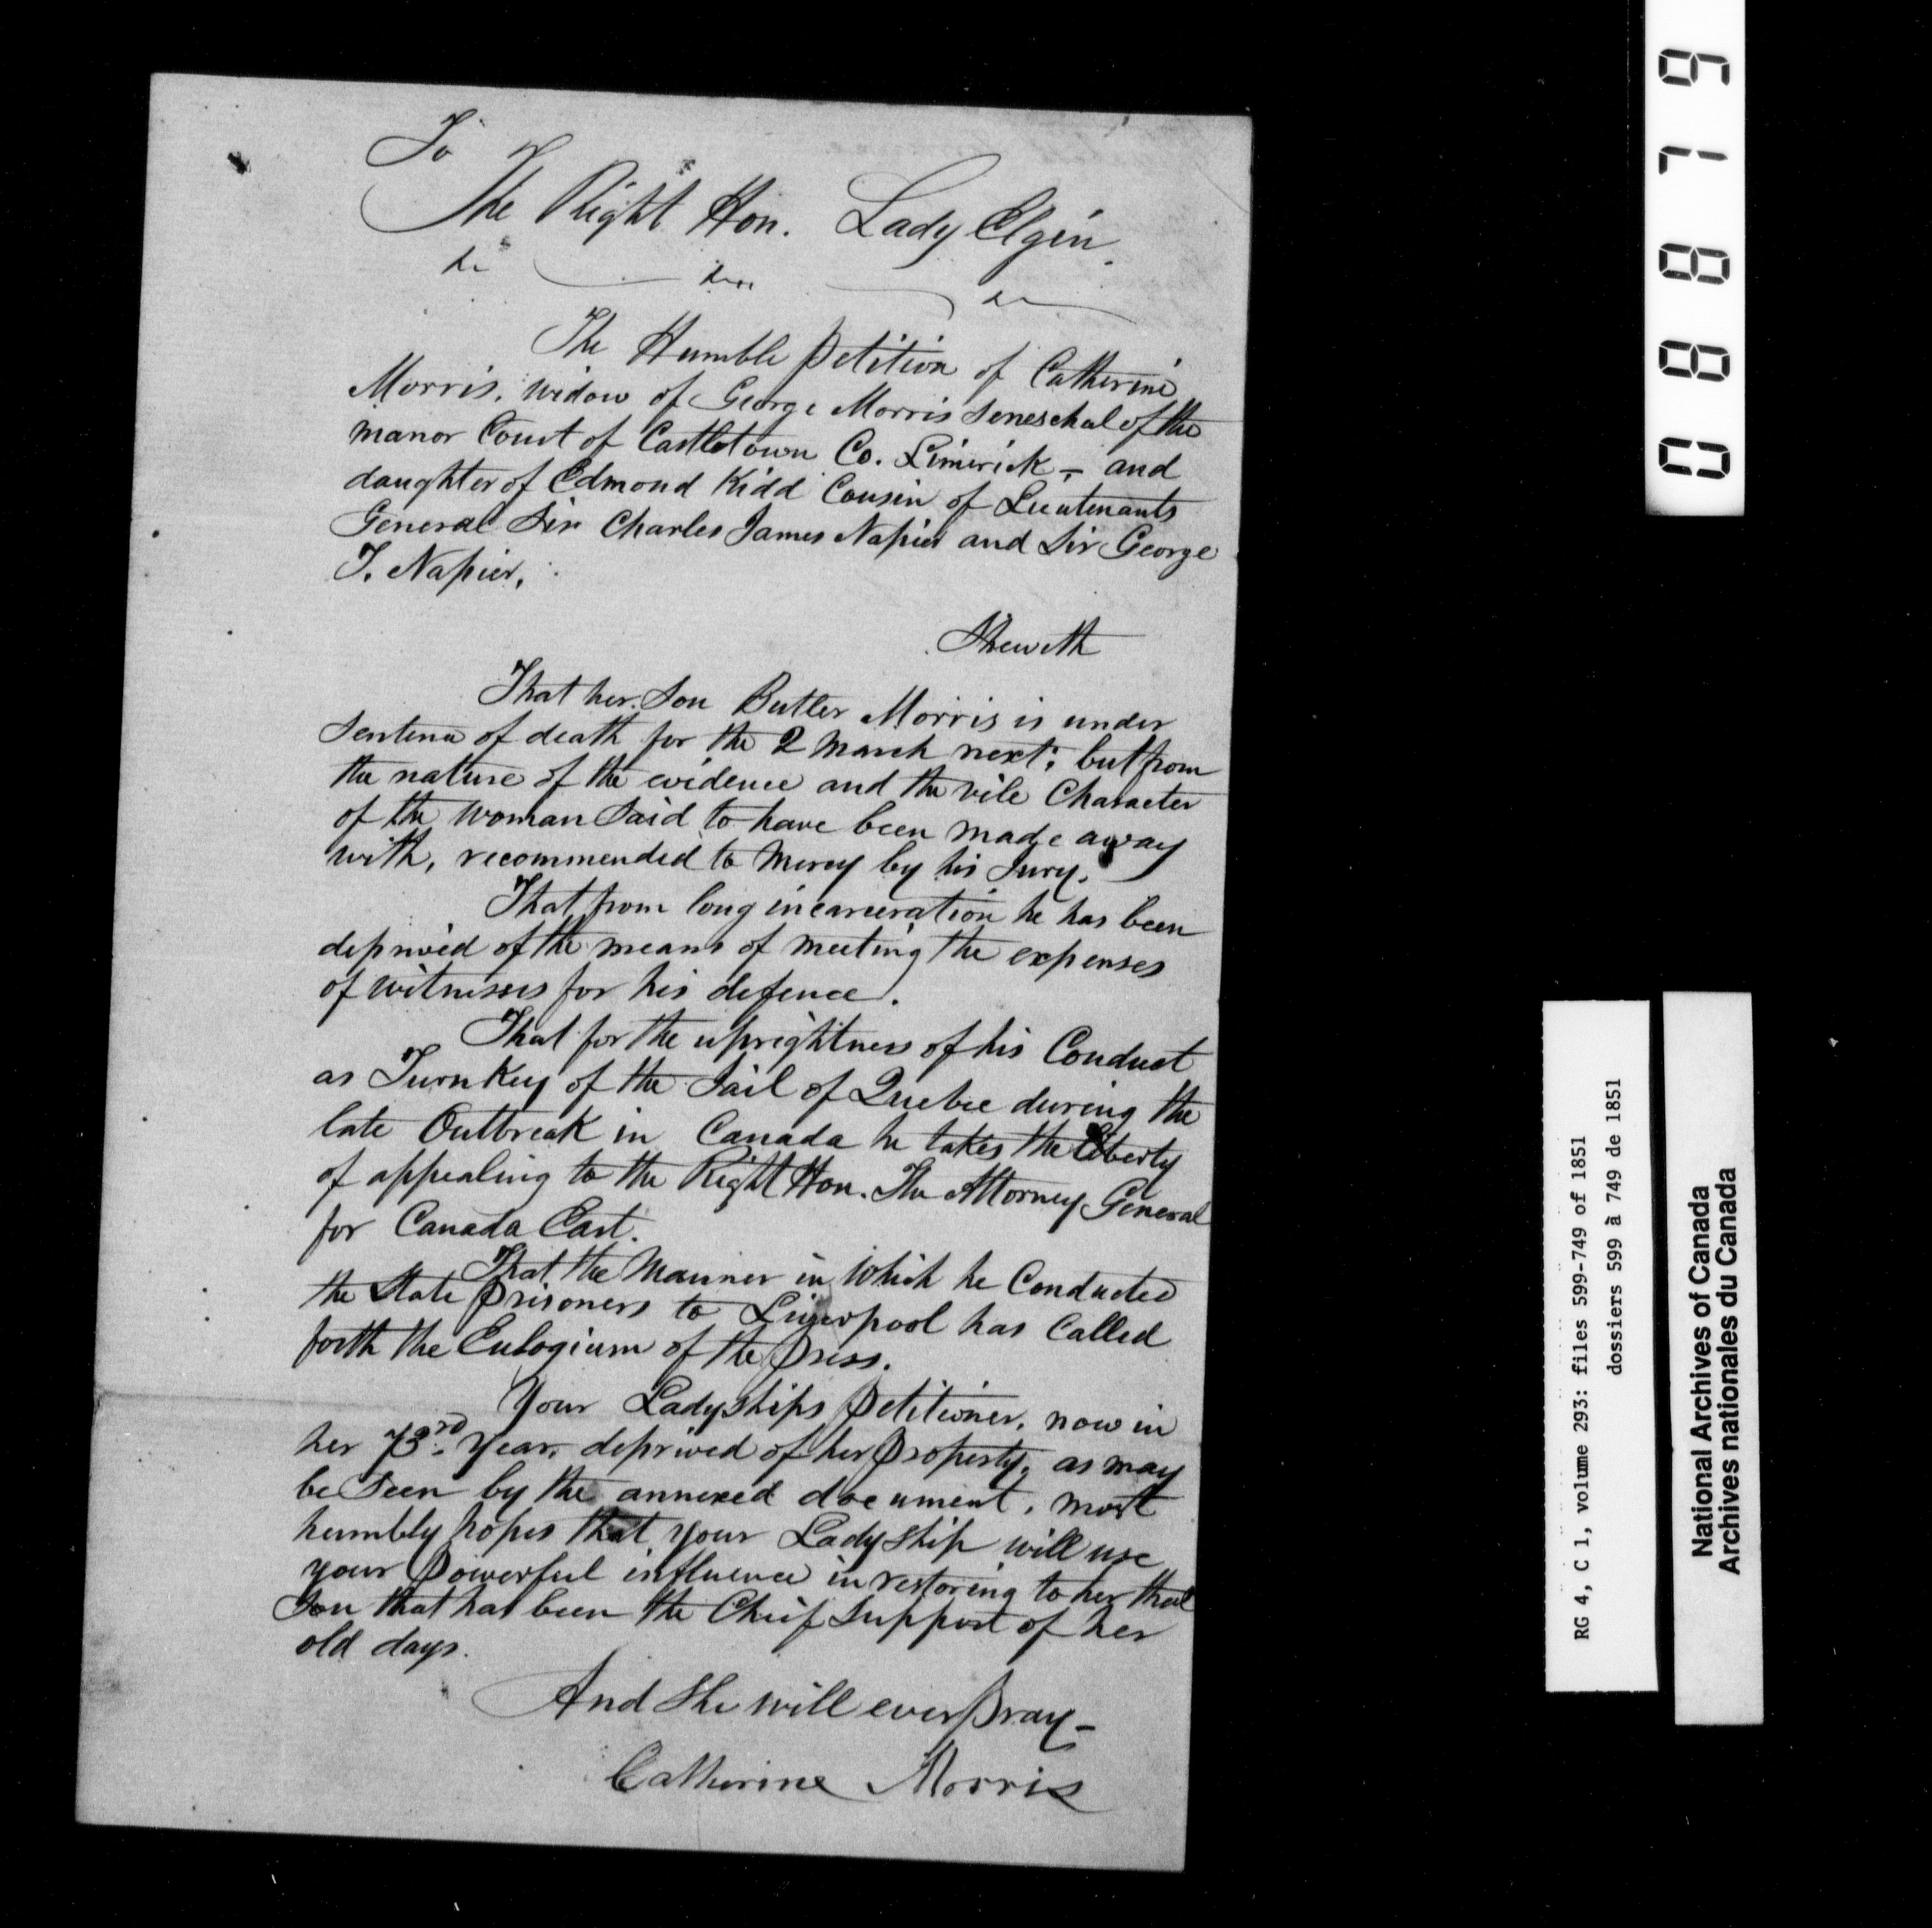 To
The Right Hon. Lady Elgin.
&c &c &c
The Humble Petition of Catherine
Morris, widow of George Morris Seneschal of the
manor Court of Castletown Co. Limerick – and
daughter of Edmond Kidd Cousin of Lieutenants
General Sir Charles James Napier and Sir George
T. Napier,
Sheweth
That her Son Butler Morris is under
Sentence of death for the 2 March next; but from
the nature of the evidence and the vile Character
of the woman Said to have been made away
with, recommended to Mercy by his Jury.
That from long incarceration he has been
deprived of the means of meeting the expenses
of witnesses for his defence.
That for the uprightness of his Conduct
as Turnkey of the Jail of Quebec during the
late Outbreak in Canada he takes the liberty
of appealing to the Right Hon. The Attorney General
for Canada East.
That the Manner in Which he Conducted
the State Prisoners to Liverpool has Called
forth the Eulogium of the Press.
Your Ladyships Petitioner, now in
her 73rd year, deprived of her Property, as may
be Seen by the annexed document, most
humbly hopes that your Ladyship will use
your Powerful influence in restoring to her that
Son that has been the Chief Support of her
old days.
And She will ever Pray –
Catherine Morris
08879
RG 4, C 1, volume 293: files 599-749 of 1851
dossiers 599 à 749 de 1851
National Archives of Canada
Archives nationales du Canada